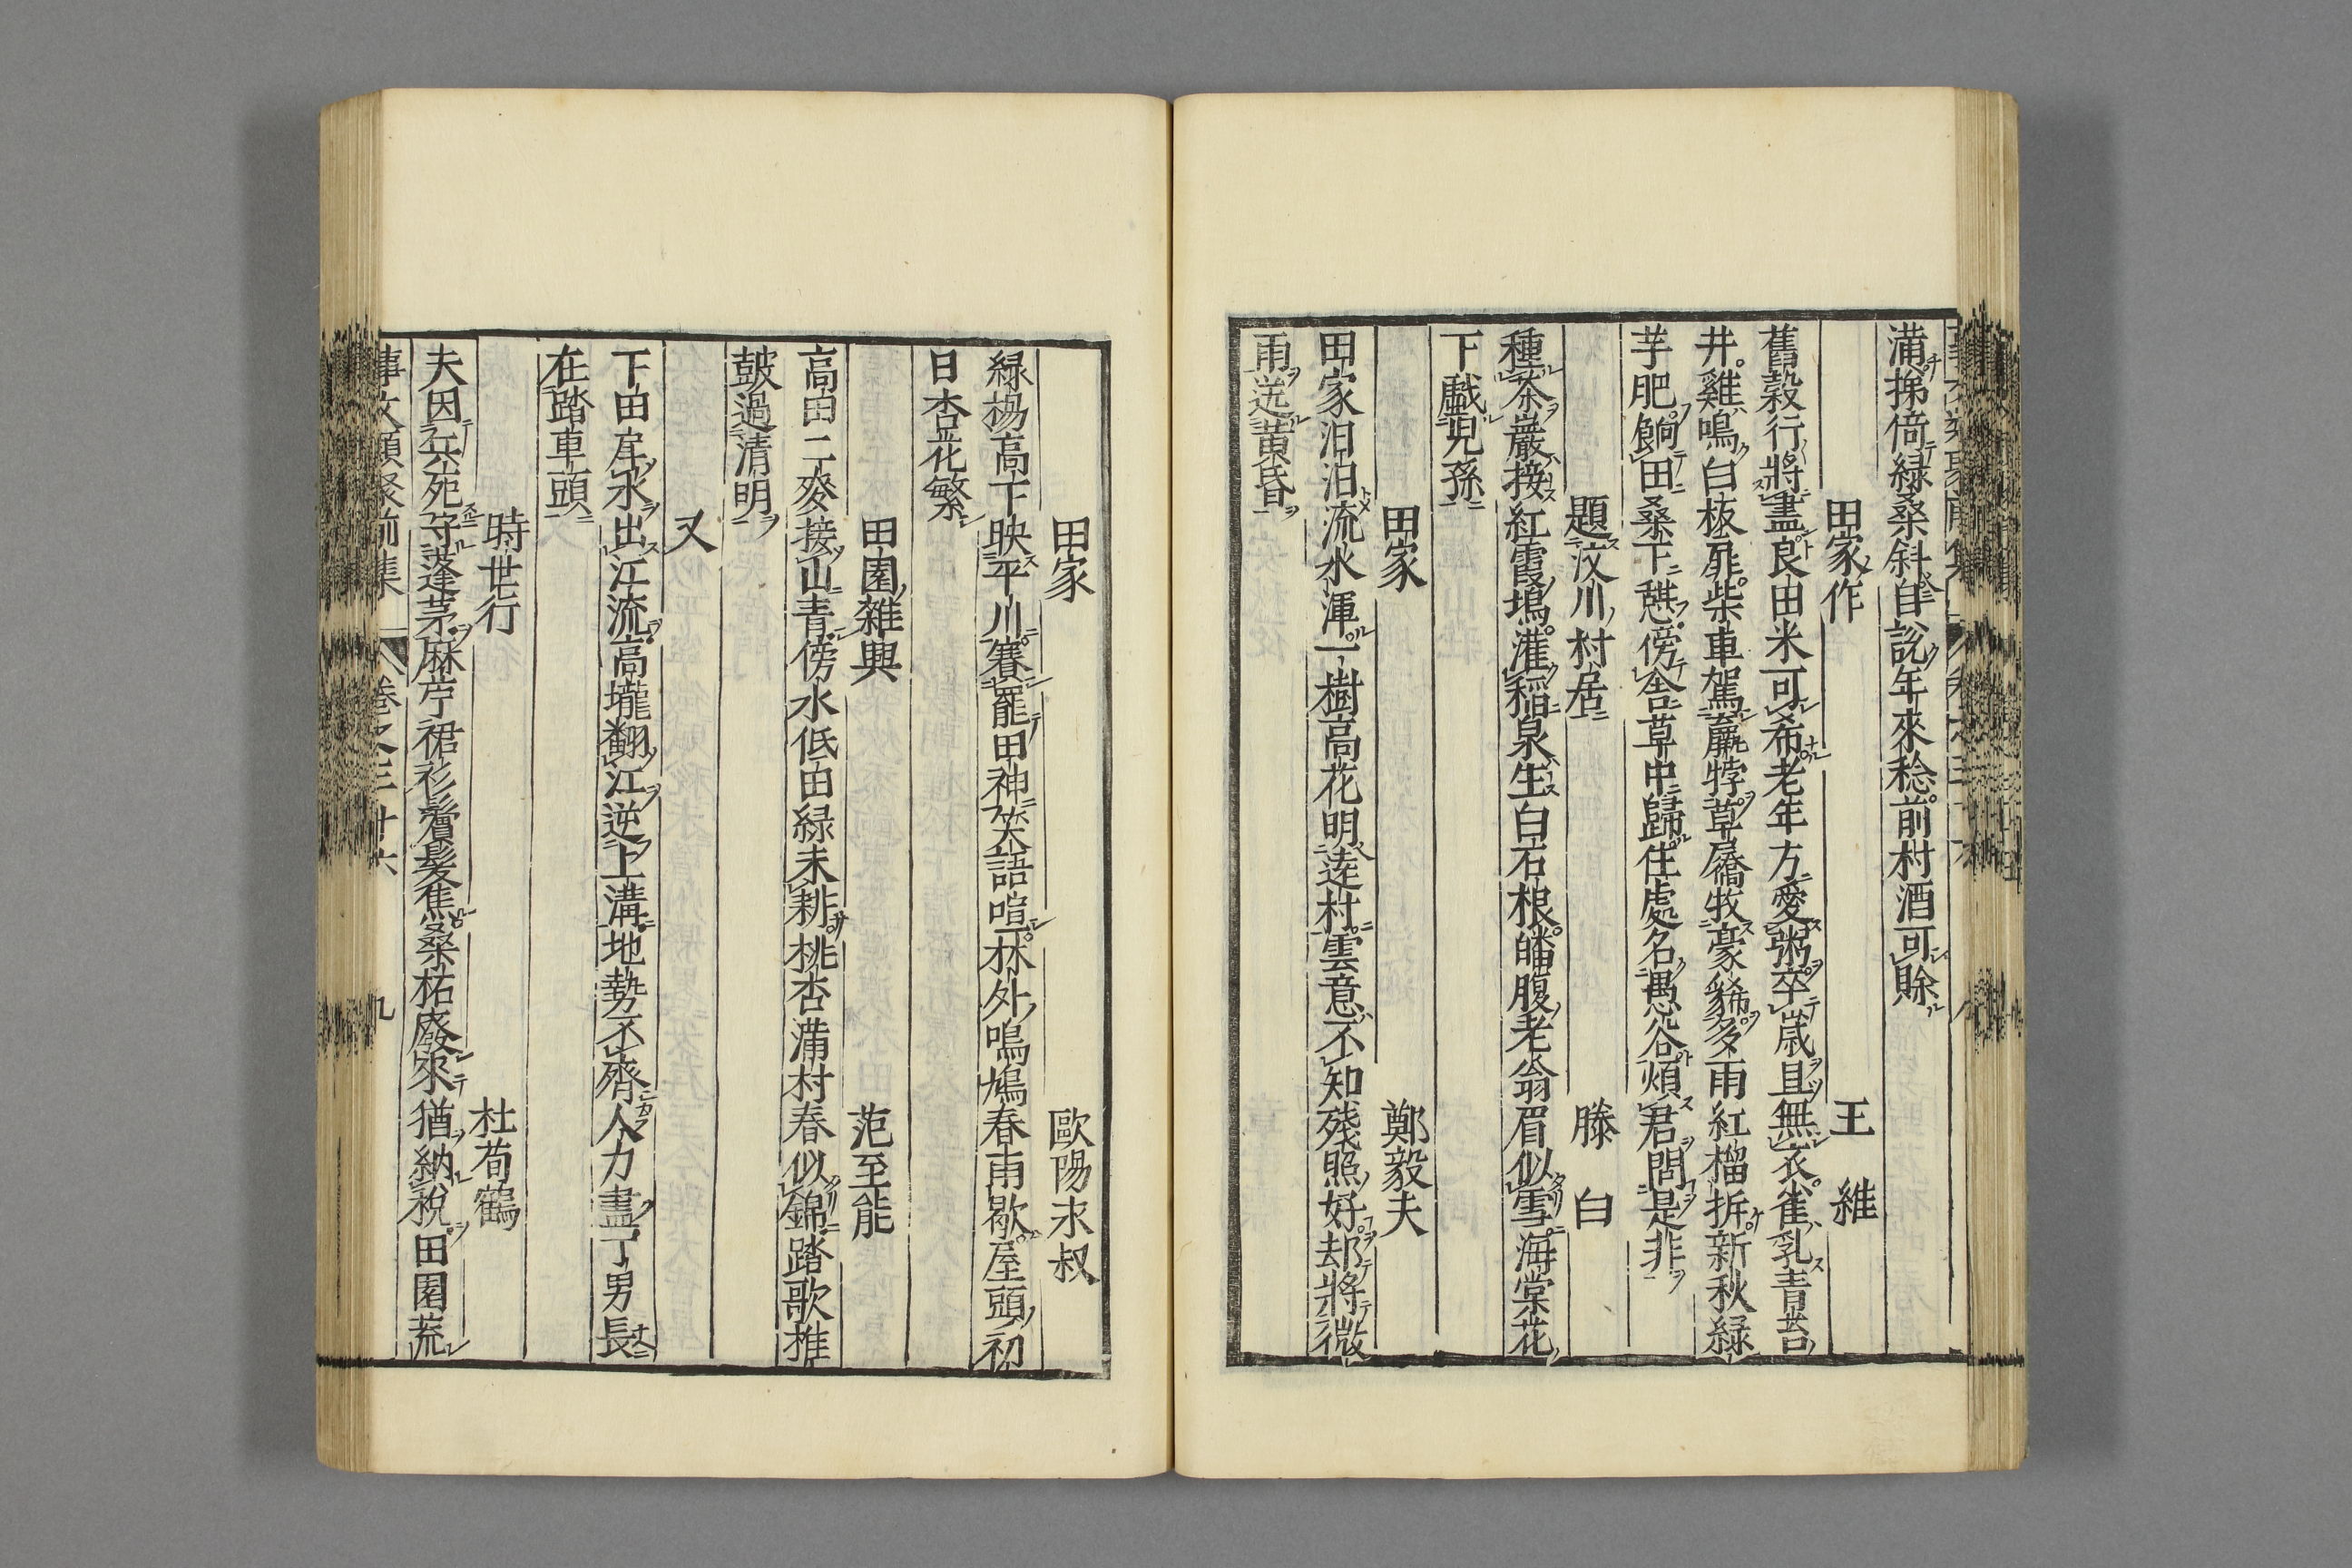 滿抹倍緑桑斜自說年來稔前村酒可賒
田家作 王維
舊穀行將盡良田米可希老年方愛粥卒歲且無衣雀乳青苔
井雞鳴白板扉柴車駕羸牸草屩牧豪豨多雨紅榴拆新秋緑
芋肥餉田桑下憇傍舎草中歸住處名愚谷煩君問是非
題汶川村居 滕白
種茶巖接紅霞塢灌稲泉生白石根皤腹老翁眉似雪海棠花
下戲兒孫
田家 鄭毅夫
田家汩汩流水渾一樹高花明逺村雲意不知殘照好却將微
雨送黃昏
田家 歐陽永叔
緑楊高下映平川賽罷田神笑語喧林外鳴鳩春雨歇屋頭初
日杏花繁
田園雜興 范至能
高田二麥接山青傍水低田緑未耕桃杏滿村春似錦踏歌推
皷過清明
又
下田戽水出江流高壠翻江逆上溝地勢不齊人力盡丁男長
在踏車頭
時世行 杜荀鶴
夫因兵死守蓬茅麻苧裙衫鬢髮焦桑柘廢來猶納稅田園荒
事文類聚前集 卷之三十六 九